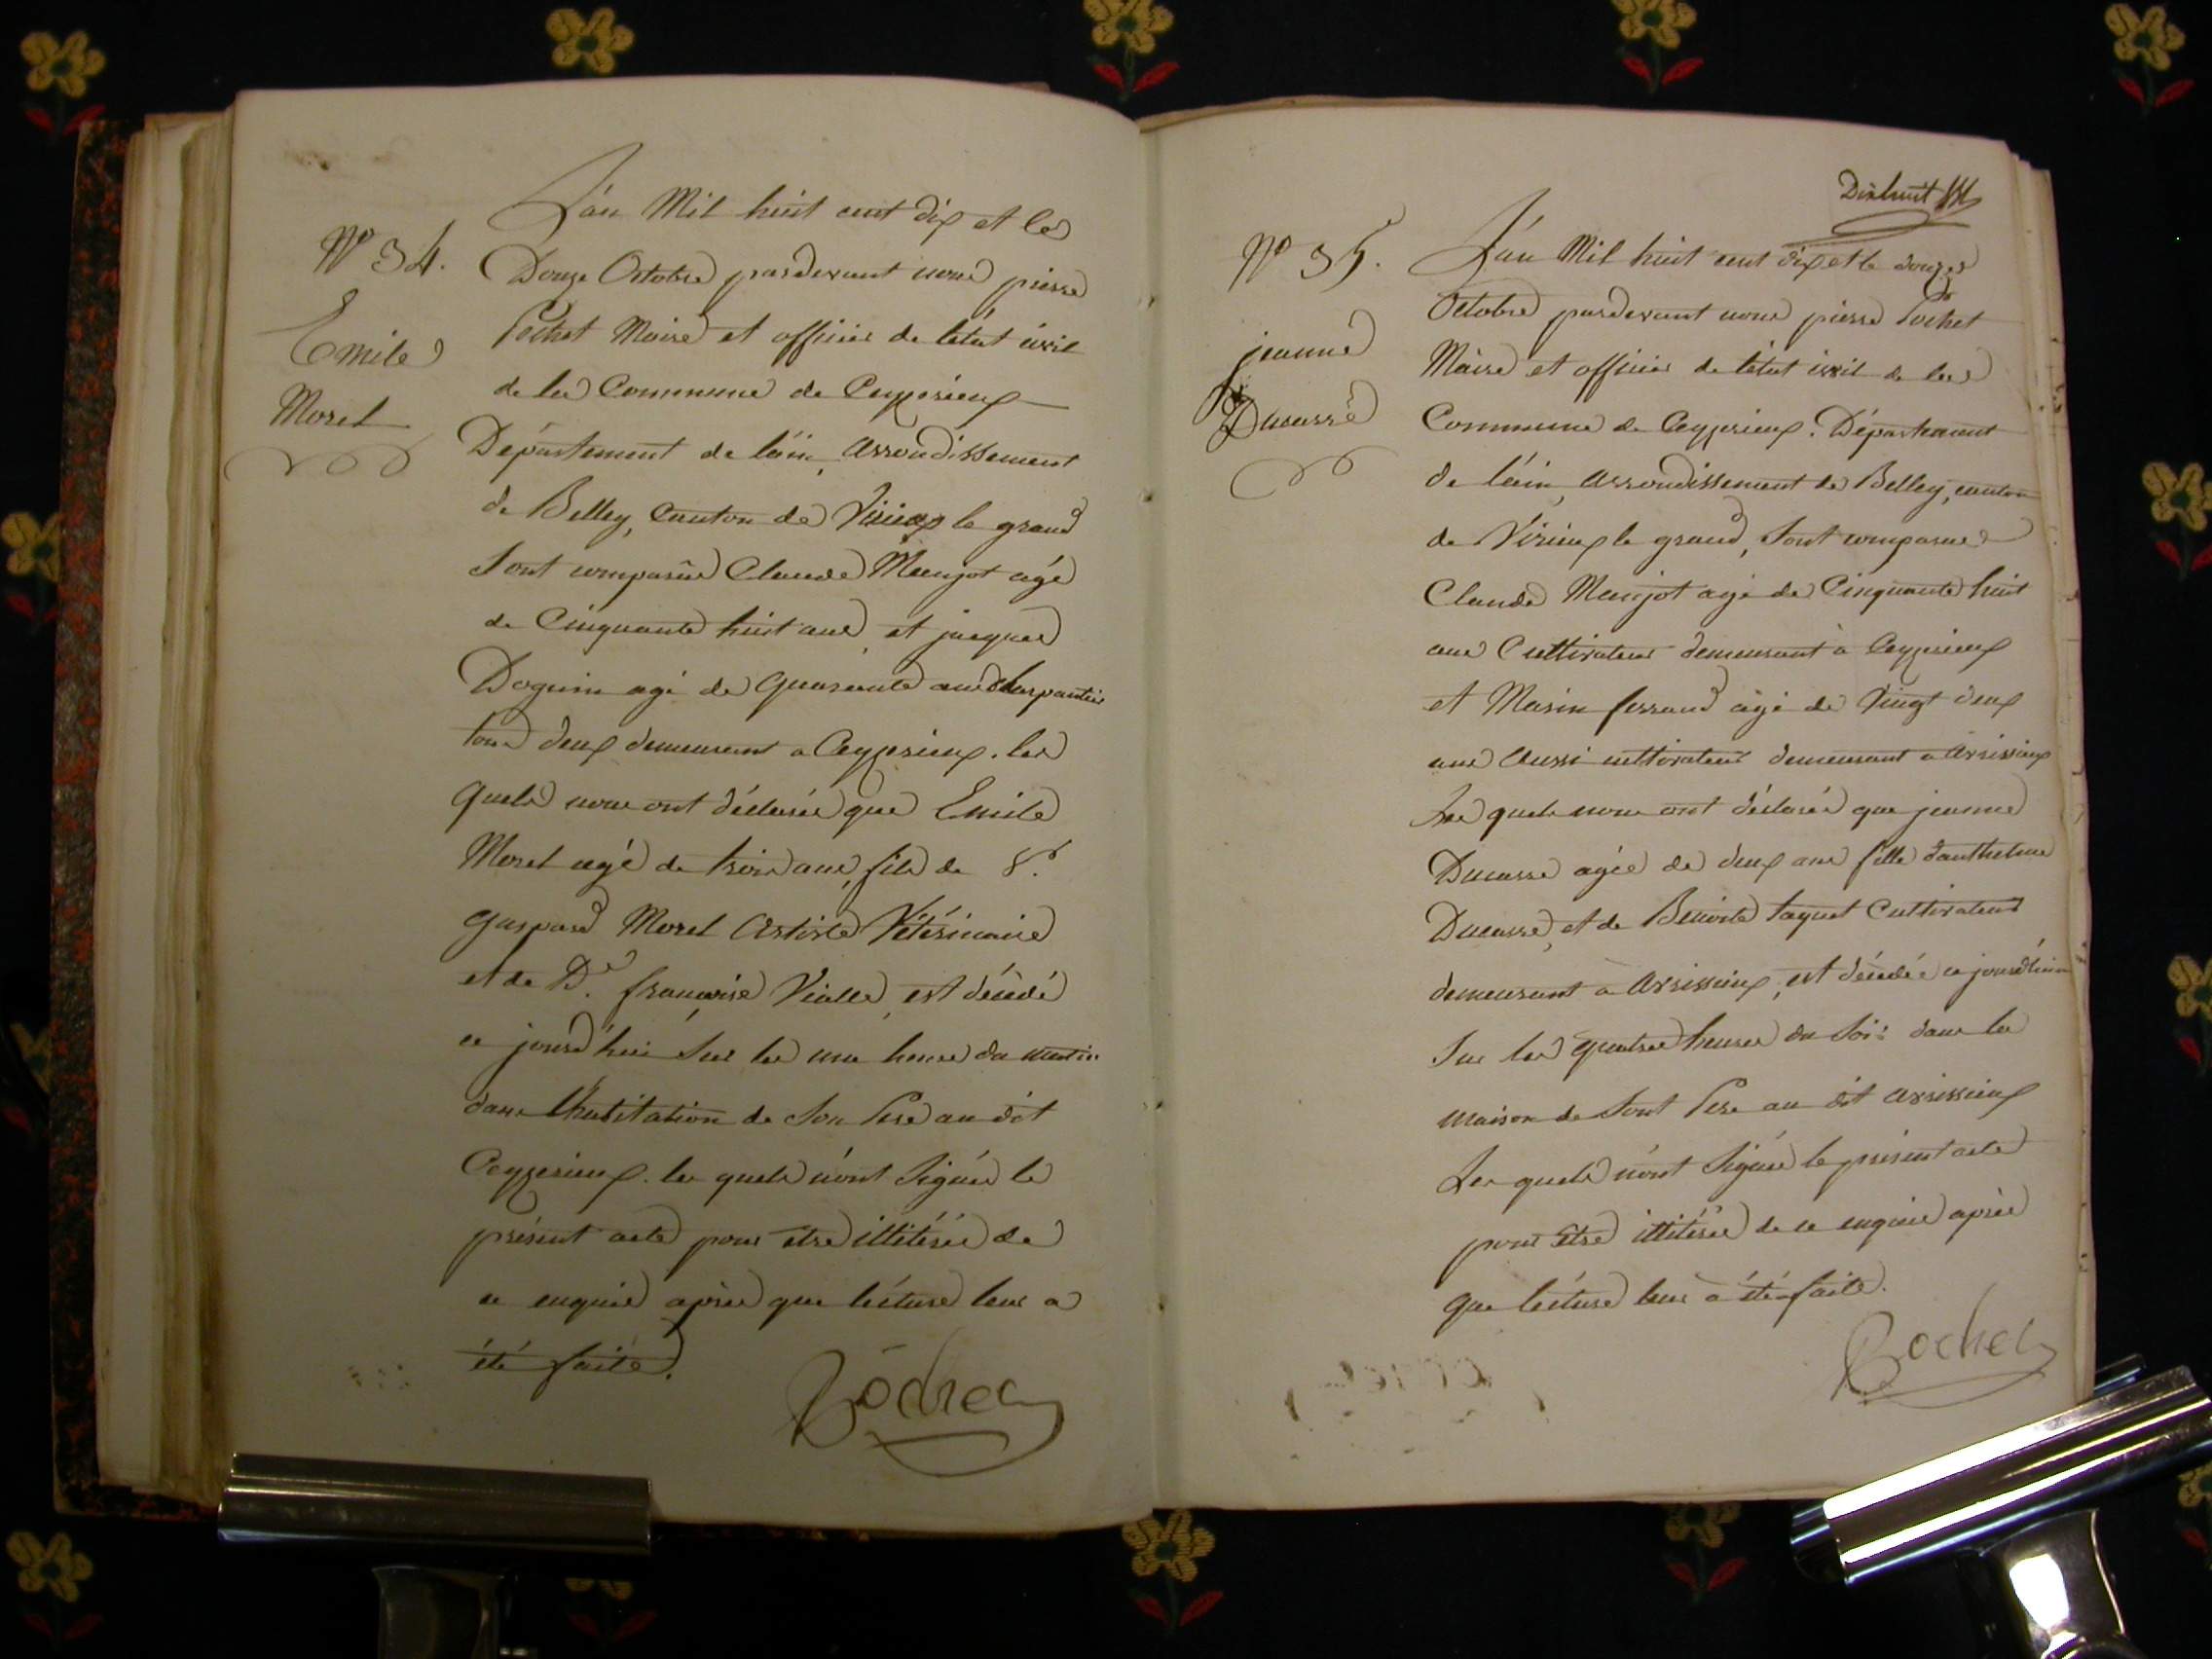 N° 34.
Emile
Morel
L'án Mil huit cent dix et le
Douze Octobre pardevant nous pierre
Pochet Maire et officier de l'état civil
de la Commune de Ceyzerieux
Département de l'áin, arrondissement
de Belley, Canton de Virieux le grand
Sont comparûs Claude Manjot agé
de Cinquante huit ans, et jacques
Doguin agé de Quarante ans Charpantier
tous deux demeurant a Ceyzerieux. les
quels nous ont déclarés que Emile
Morel agé de trois ans, fils de S.r
gaspard Morel Artiste Vétérinaire
et de D.e françoise Vialle, est décédé
ce jourd'hui Sur les une heure du matin
dans l'habitation de Son Pere au dit
Ceyzerieux. les quels n'ont Signés le
présent acte pour etre illitérés de
ce enquis après que lécture leur a
été faite.
Pochet
Dixhuit
N° 35.
jeanne
Ducassé
L'án Mil huit cent dix et le douze
Octobre pardevant nous pierre Pochet
Maire et officier de l'état civil de la
Commune de Ceyzerieux. Département
de l'áin, arrondissement de Belley, canton
de Virieux le grand, Sont comparus
Claude Manjot agé de Cinquante huit
ans Cultivateur demeurant à Ceyzerieux
et Marin ferrand agé de Vingt deux
ans Aussi cultivateur demeurant a Avrissieux
Les quels nous ont déclarés que jeanne
Ducasse agée de deux ans fille d'anthelme
Ducasse, et de Benoite taquet Cultivateurs
demeurant à Avrissieux, est décédée ce jourd'huin
Sur les quatre heures du Soir dans la
maison de Sont Pere au dit avrissieux
Les quels n'ont Signés le présent acte
pour être illitérés de ce enquis après
que lécture leur à été faite.
Pochet